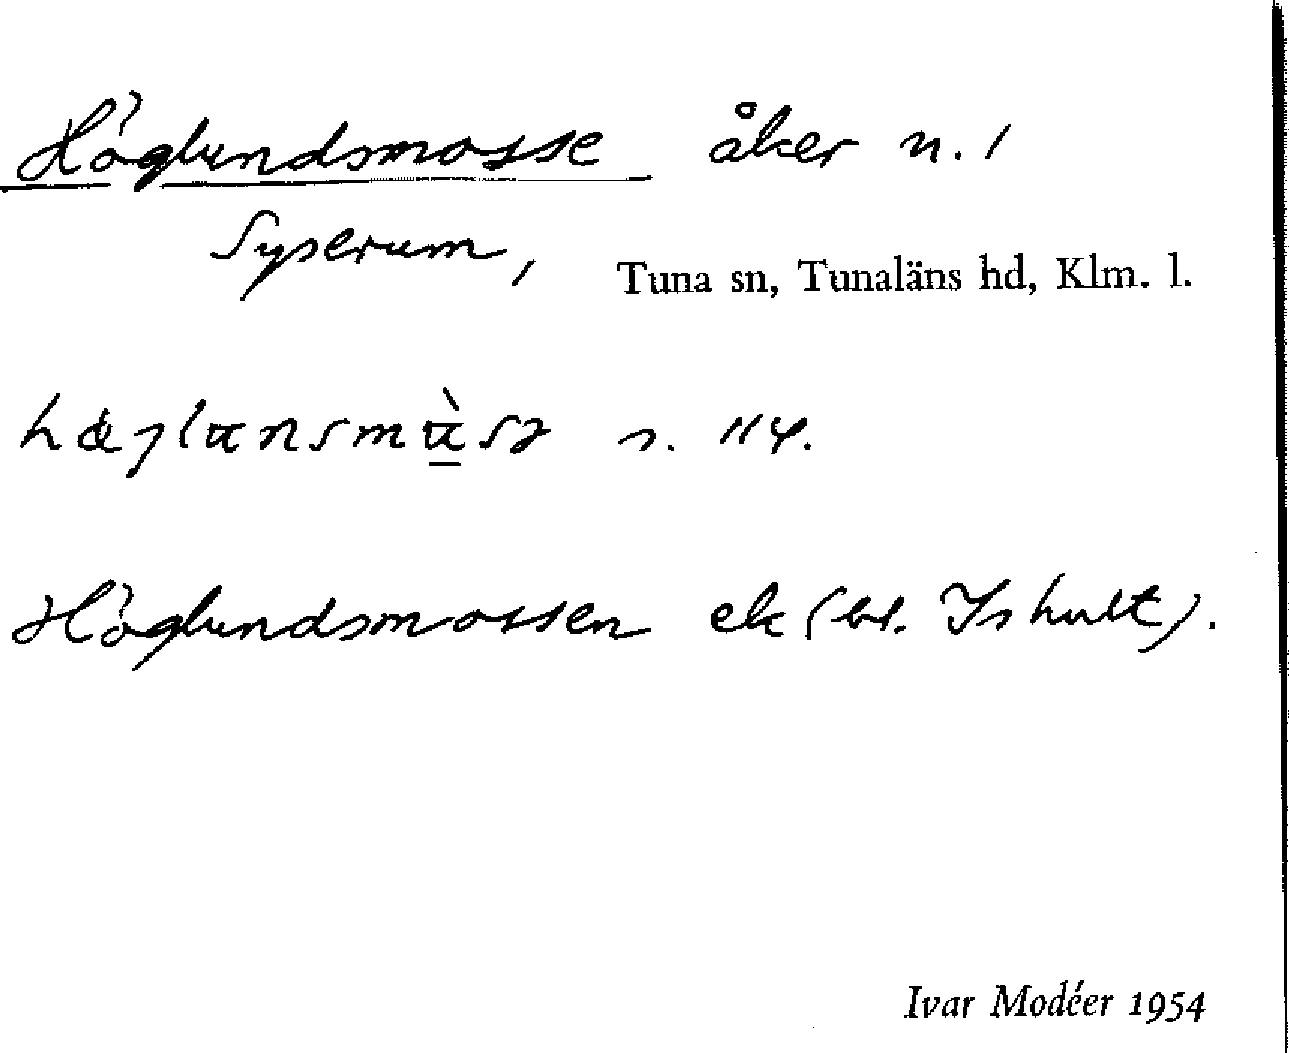 Höglundsmosse åker n. 1
Syserum,
Tuna sn, Tunaläns hd, Klm. l.
s. 114.
Höglundsmossen ek (bl. Ishult).
Ivar Modéer 1954